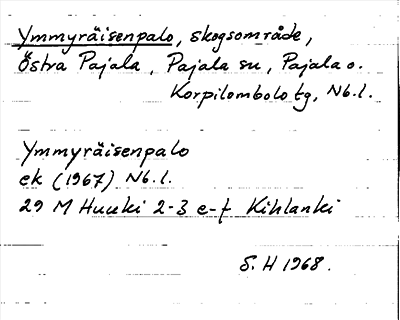 Ymmyräisenpalo, skogsområde,
Östra Pajala, Pajala sn, Pajala o.
Korpilombolo tg, Nb.l.
Ymmyräisenpalo
ek (1967) Nb.l.
29 M Huuki 2-3 e-f Kihlanki
S. H 1968.